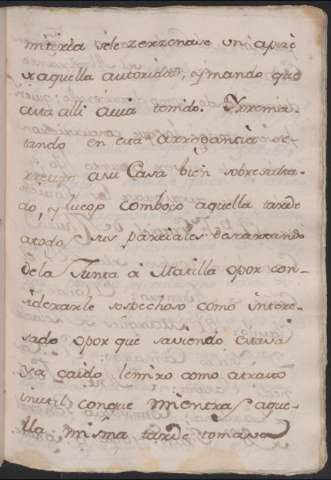 miseria se le zerzenase un apize
de aquella autoridad, y mando que
asta alli avia tenido. Y rrema
tando en esta arrogancia se
rretiro a su Casa bien sobresalta
do, y luego comboco aquella tarde
a todos sus parciales descartando
de la Junta a Matilla o por con
siderarle sospechoso como intere
sado o por que saviendo estava
ya caido le miro como a trasto
inutil conque mientras aque
lla misma tarde tomava